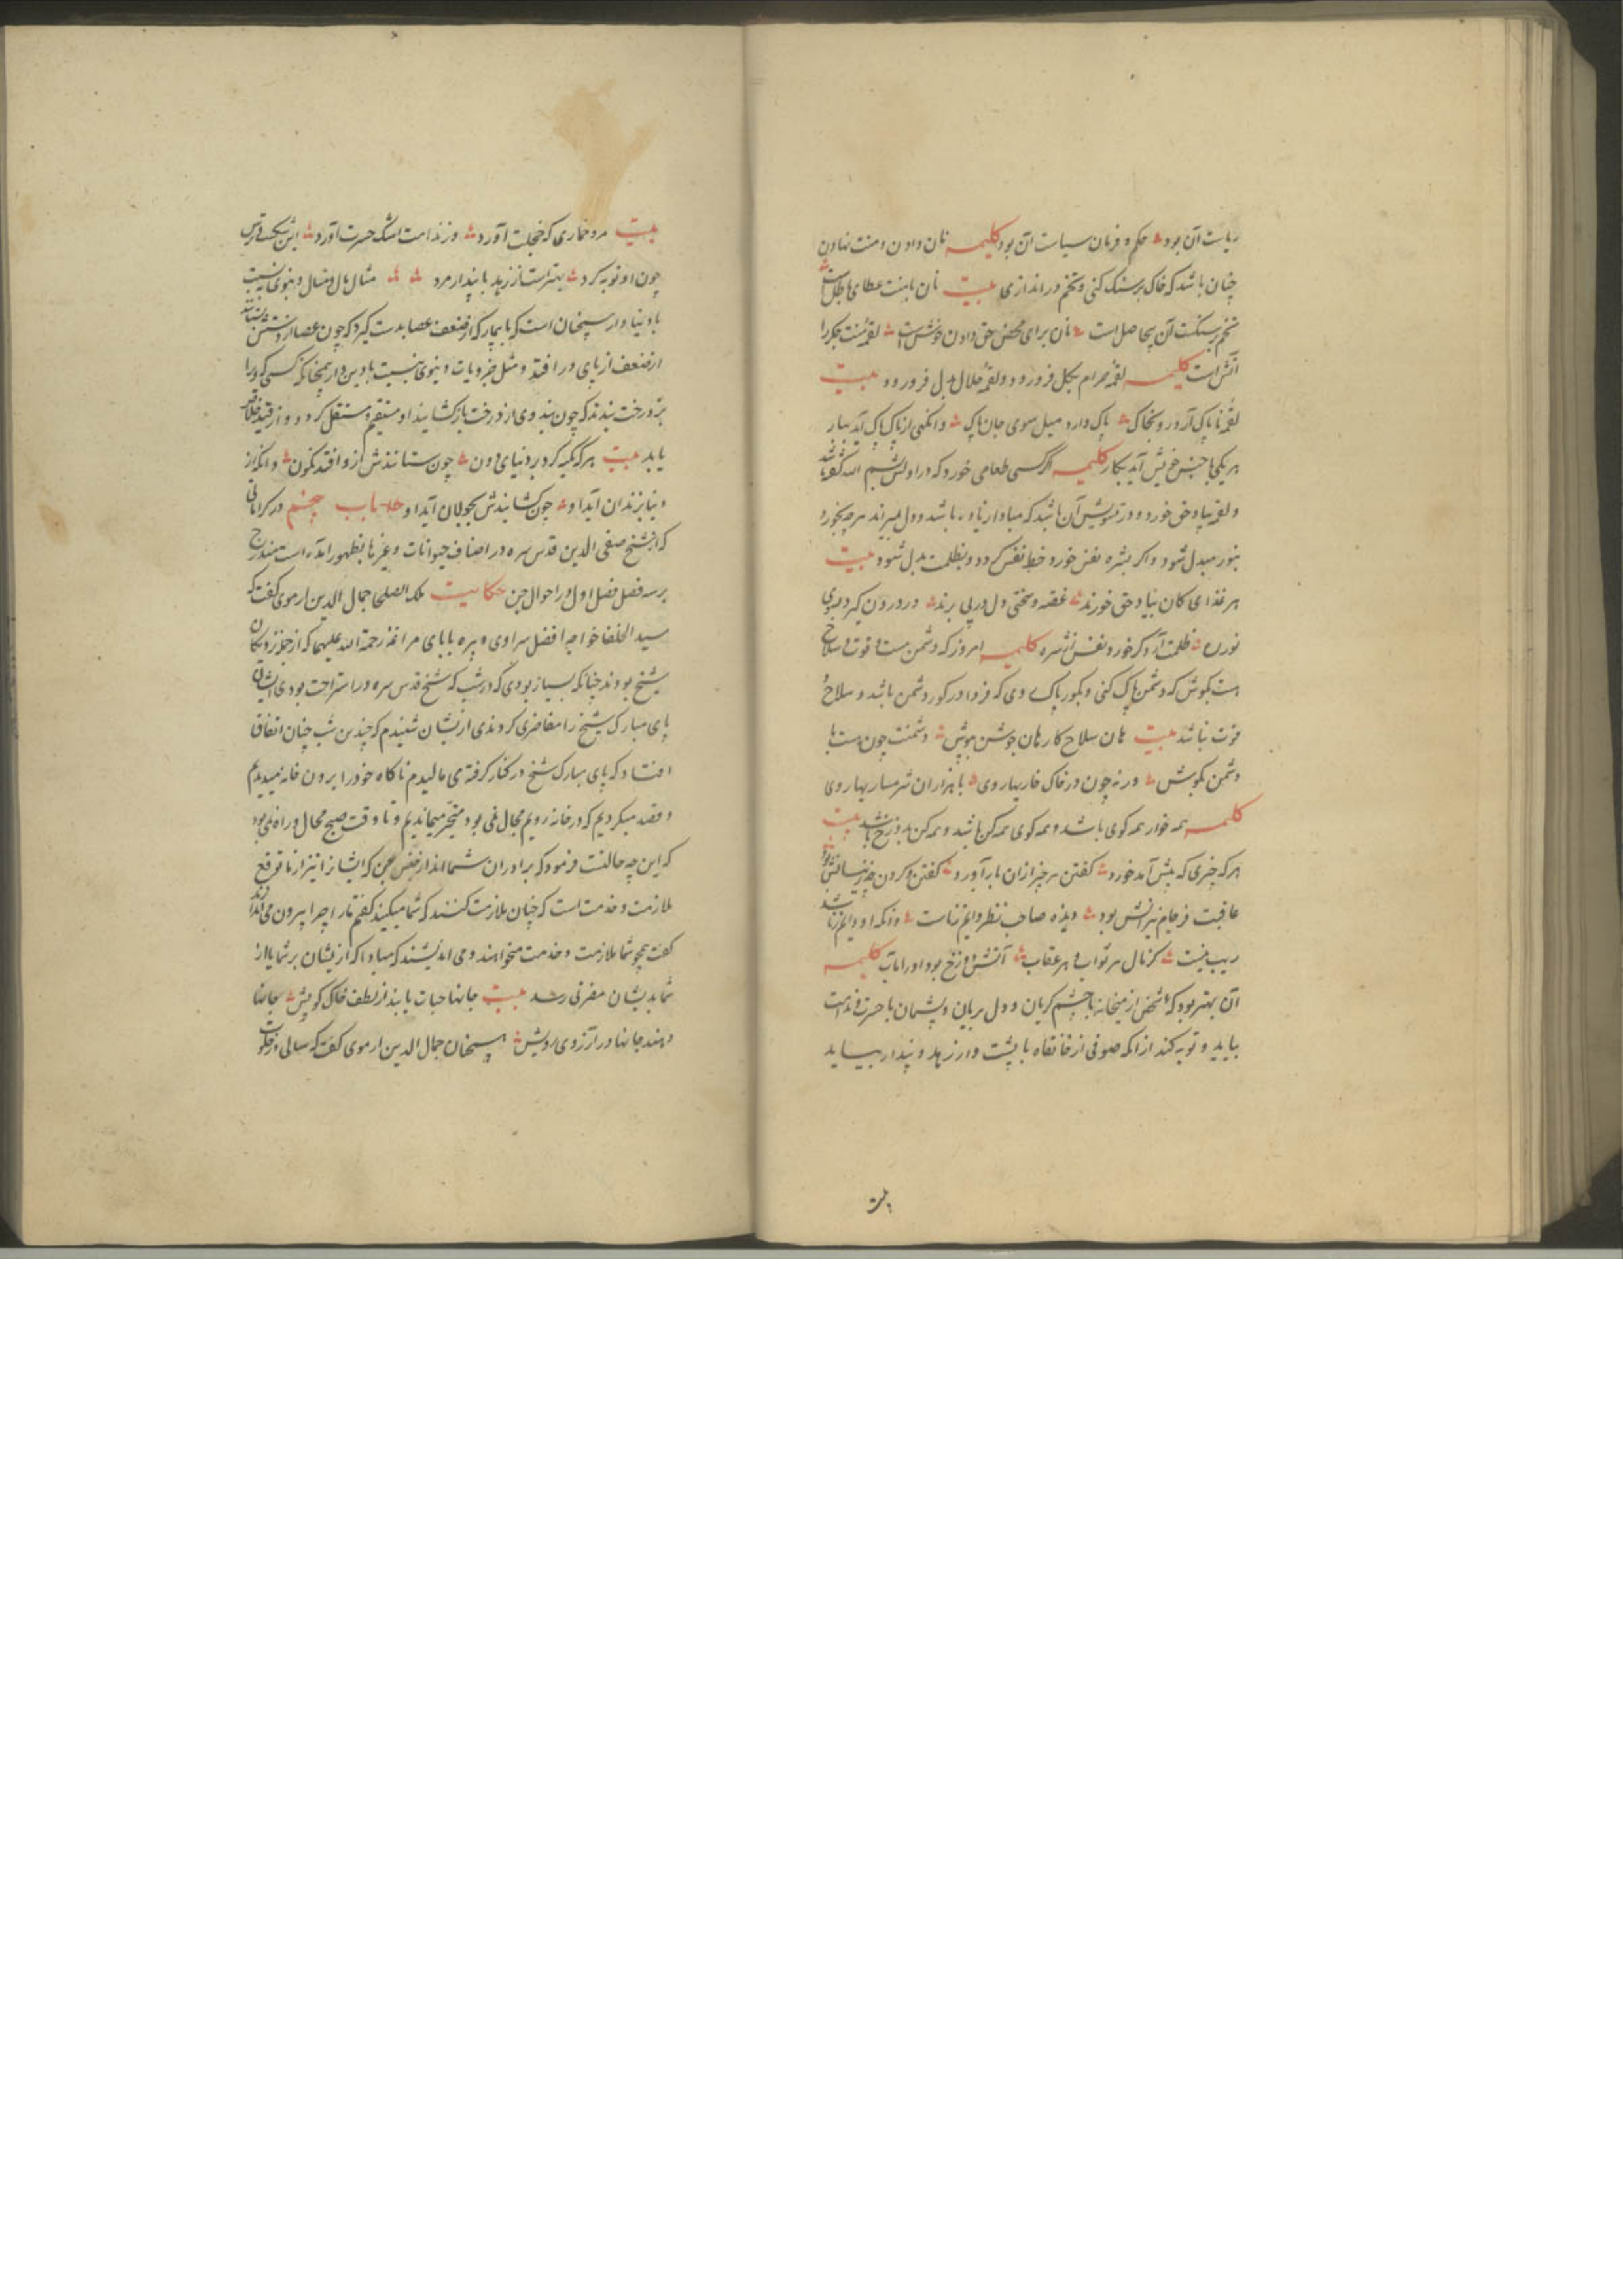 ریاست آن بود حکم و فرمان سیاست آن بود کلیمه نان دادن و منت نهادن
چنان باشد که خاک بر سنک کنی و تخم در اندازی بیت نان بمنت عطای باطل است
تخم بر سنکست آن بیحاصل است نان برای محض حق دادن خوش است لقمه منت جکر را
آتش است کلیمه لقمه حرام بکل فرو رود و لقمه حلال بدل فرو رود بیت
لقمه ناپاک آرد رو بخاک پاک دارد میل سوی جان پاک وانکهی از پاک پاک آید ببار
هر یکی با جنس خویش آید بکار کلیمه اکر کسی طعامی خورد که در اولش بسم الله گفته باشد
و لقمه بیاد حق خورد و در تشویش آن باشد که مبادا زیاده باشد و دل میبراند هرچه بخورد
بنور مبدل شود و اکر بشره نفس خورد و حظ نفس کردد و بظلمت بدل شود بیت
هر غذای کان بیاد حق خورند غصه و سختی دل در پی برند در درون کیرد
نور ظلمت آرد کر خورد نفس از شره کلیمه امروز که دشمن هست و قوت و سلاح
هست بکوش که دشمن پاک کنی و بکور پاک روی که فردا در کور دشمن باشد و سلاح و
قوت نباشد بیت هان سلاح کار هان جوشن بپوش دشمنت چون هست با
دشمن بکوش ورنه چون در خاک خار بهار روی با هزاران شرمسار بهار روی
کلیمه همه خوار همه کوی باشد و همه کوی همه کن باشد و همه کن بدوزخ باشد بیت
هر که چیزی که پیش آمد خورد کفتن هر چیز ازان بار آورد کفتن و کردن
عاقبت فرجام نیرانش بود دیده صاحب نظر دایم زناست وانکه او دایم زنا باشد
ریب نیست کز نال هر ثواب و هر عقاب آتش دوزخ بود او را مآب کلیمه
آن بهتر بود که شخص از میخانه با چشم کریان و دل بریان و پشیمان با حسرت و ندامت
بیاید و توبه کند از انکه صوفی از خانقاه با پشت وار زهد و پندار بیاید
بیت
بیت مرد خماری که خجلت آورد وز ندامت اشک حسرت آورد این
چون او توبه کرد بهتر است از زهد با پندار مرد مثال مال و منال دنیوی به نسبت
با دنیادار همچنان است که با بیمار که از ضعف عصا بدست کیرد که چون عصا از دستش بستانند
از ضعف از پای در افتد و مثل خیرویات دنیوی بنسبت با دین دار همچنانکه کسی که ورا
بر درخت بندند که چون بند وی از درخت باز کشایند او مستقیم و مستقل کردد و از قید خلاص
یابد بیت هر که تکیه کرد بر دنیای دون چون ستانندش ازو افتد نکون وانکه از
دنیا بزندان آید او چون کشایندش بجولان آید او باب پنجم در کراماتی
که از شیخ صفی الدین قدس سره در اصناف حیوانات و غیرها بظهور آمده است مندرج
بر سه فصل فصل اول در احوال جن حکایت ملک الصلحا جمال الدین ارموی کفت که
سید الخلفا خواجه افضل سراوی و پیره بابای مراغه رحمة الله علیهما که از جمله نزدیکان
شیخ بودند چنانکه بسیار بودی که در شب که شیخ قدس سره در استراحت بودی ایشان
پای مبارک شیخ را مغامزی کردندی از یشان شنیدم که چندین شب چنان اتفاق
افتاد که پای مبارک شیخ در کنار کرفته می مالیدم ناکاه خود را برون خانه میدیدیم
و قصد میکردیم که در خانه رویم مجال نمی بود متحیر میماندیم و تا وقت صبح مجال و راه نمی بود
که این چه حالتست فرمود که برادران شما اند از جنس جن که ایشانرا نیز از ما توقع
ملازمت و خدمت است که چنان ملازمت کنند که شما میکنید کفتم ما را چرا بیرون می اندازند
کفت همچو شما ملازمت و خدمت میخواهند و می اندیشند که مبادا که از یشان بر شما یا از
شما بدیشان مضرتی رسد بیت جانها حیات یابند از لطف خاک کویش جانها
دهند جانها در آرزوی رویش همچنان جمال الدین ارموی کفت که سالی در خلوت